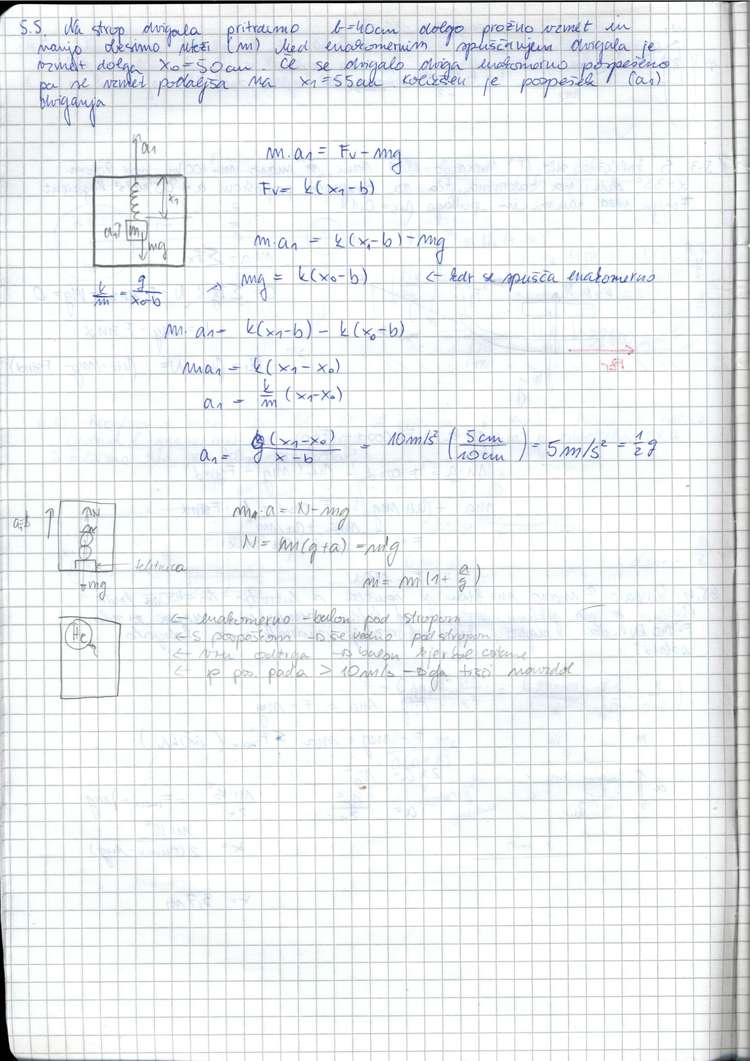 5.5. Na strop dvigala pritrdimo b=40cm dolgo prožno vzmet in
nanjo obesimo utež (m) Med enakomernim spuščanjem dvigala je
vzmet dolga x0=50cm. Če se dvigalo dviga enakomerno pospešeno
pa se vzmet podaljša na x1=55cm kolikšen je pospešek (a1)
dviganja
a1
m·a1 = Fv-mg
x1
Fv= k(x1-b)
m
mg
m·a1 = k(x1-b)-mg
k/m = g/(x0-b)
mg = k(x0-b) ← kdr se spušča enakomerno
m·a1= k(x1-b) - k(x0-b)
ma1 = k(x1-x0)
a1 = k/m (x1-x0)
a1= g(x1-x0)/(x-b) = 10m/s² (5cm/10cm) = 5m/s² = 1/2 g
N
m·a = N-mg
N= m(g+a) = m'g
tehtnica
mg
m'= m(1+a/g)
He
← enakomerno - balon pod stropom
← s pospeškom → še vedno pod stropom
← vrv odtrga → balon
← p pos. pada > 10m/s → ga navzdol